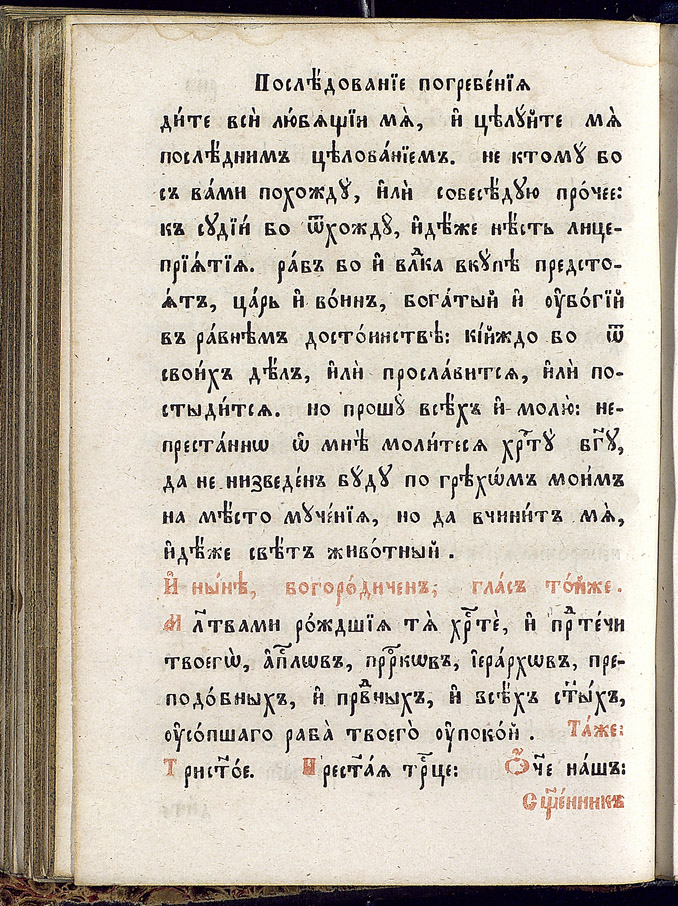 Послѣ́дованїе погребе́нїѧ
ди́те всѝ лю́бѧщїи мѧ̀, и҆ цѣлꙋ́йте мѧ̀
послѣ́днимъ цѣлова́нїемъ. не ктомꙋ̀ бо
съ ва́ми похождꙋ̀, и҆лѝ собесѣ́дꙋю про́чее:
къ сꙋдїи́ бо ѿхождꙋ̀, и҆дѣ́же нѣ́сть лице-
прїѧ́тїѧ. ра́бъ бо и҆ влⷣка вкꙋ́пѣ предсто-
ѧ́тъ, ца́рь и҆ во́инъ, бога́тый и҆ ᲂу҆бо́гїй
въ ра́внѣмъ досто́инствѣ: кі́йждо бо ѿ
свои́хъ дѣ́лъ, и҆лѝ просла́витсѧ, и҆лѝ по-
стыди́тсѧ. но прошꙋ̀ всѣ́хъ и҆ молю̀: не-
преста́ннѡ ѡ҆ мнѣ̀ моли́тесѧ хрⷭ҇тꙋ̀ бг҃ꙋ,
да не низведе́нъ бꙋ́дꙋ по грѣхѡ́мъ мои́мъ
на мѣ́сто мꙋче́нїѧ, но да вчини́тъ мѧ̀,
и҆дѣ́же свѣ́тъ живо́тный .
И҆ ны́нѣ, богоро́диченъ; гла́съ то́йже .
Мл҃твами ро́ждшїѧ тѧ̀ хрⷭ҇тѐ, и҆ прⷣте́чи
твоегѡ̀, а҆пⷭ҇лѡвъ, прⷪ҇ркѡвъ, їера́рхѡвъ, пре-
подо́бныхъ, и҆ првⷣныхъ, и҆ всѣ́хъ ст҃ы́хъ,
ᲂу҆со́пшаго раба̀ твоего̀ ᲂу҆поко́й . Та́же:
Трист҃о́е. Прест҃а́ѧ трⷪ҇це: Ѻ҆́ч҃е на́шъ:
Сщ҃е́нникъ